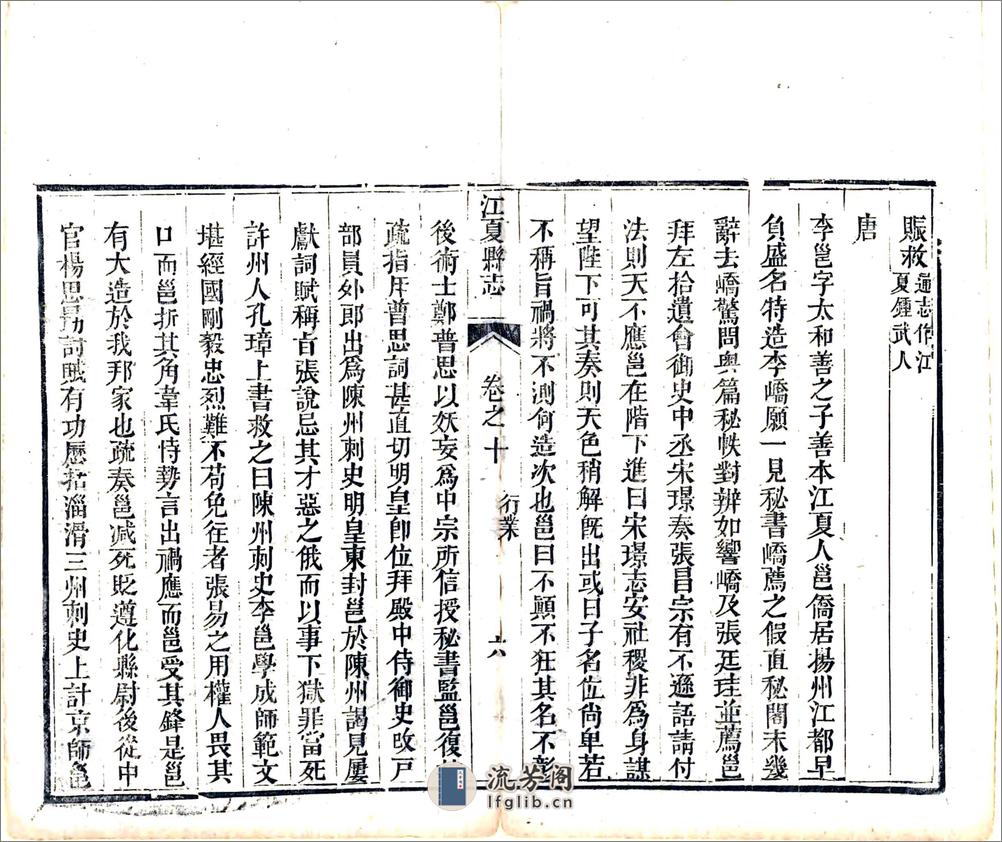 賑救通志作江
夏鍾武人
唐
李邕字太和善之子善本江夏人邕僑居揚州江都早
負盛名特造李嶠願一見秘書嶠薦之假直秘閣未幾
辭去嶠驚問奧篇秘帙對辨如響嶠及張廷珪並薦邕
拜左拾遺會御史中丞宋璟奏張昌宗有不遜語請付
法則天不應邕在階下進曰宋璟志安社稷非為身謀
望陛下可其奏則天色稍解既出或曰子名位尚卑若
不稱旨禍將不測何造次也邕曰不顛不狂其名不彰
江夏縣志
卷之十
行業
六
後術士鄭普思以妖妄為中宗所信授秘書監邕復
疏指斥普思詞甚直切明皇即位拜殿中侍御史改戶
部員外郎出為陳州刺史明皇東封邕於陳州謁見屢
獻詞賦稱旨張說忌其才惡之俄而以事下獄罪當死
許州人孔璋上書救之曰陳州刺史李邕學成師範文
堪經國剛毅忠烈難不苟免往者張易之用權人畏其
口而邕折其角韋氏恃勢言出禍應而邕受其鋒是邕
有大造於我邦家也疏奏邕減死貶遵化縣尉後從中
官楊思勗討賊有功歷括淄滑三州刺史上計京師邕
流芳閣
lfglib.cn